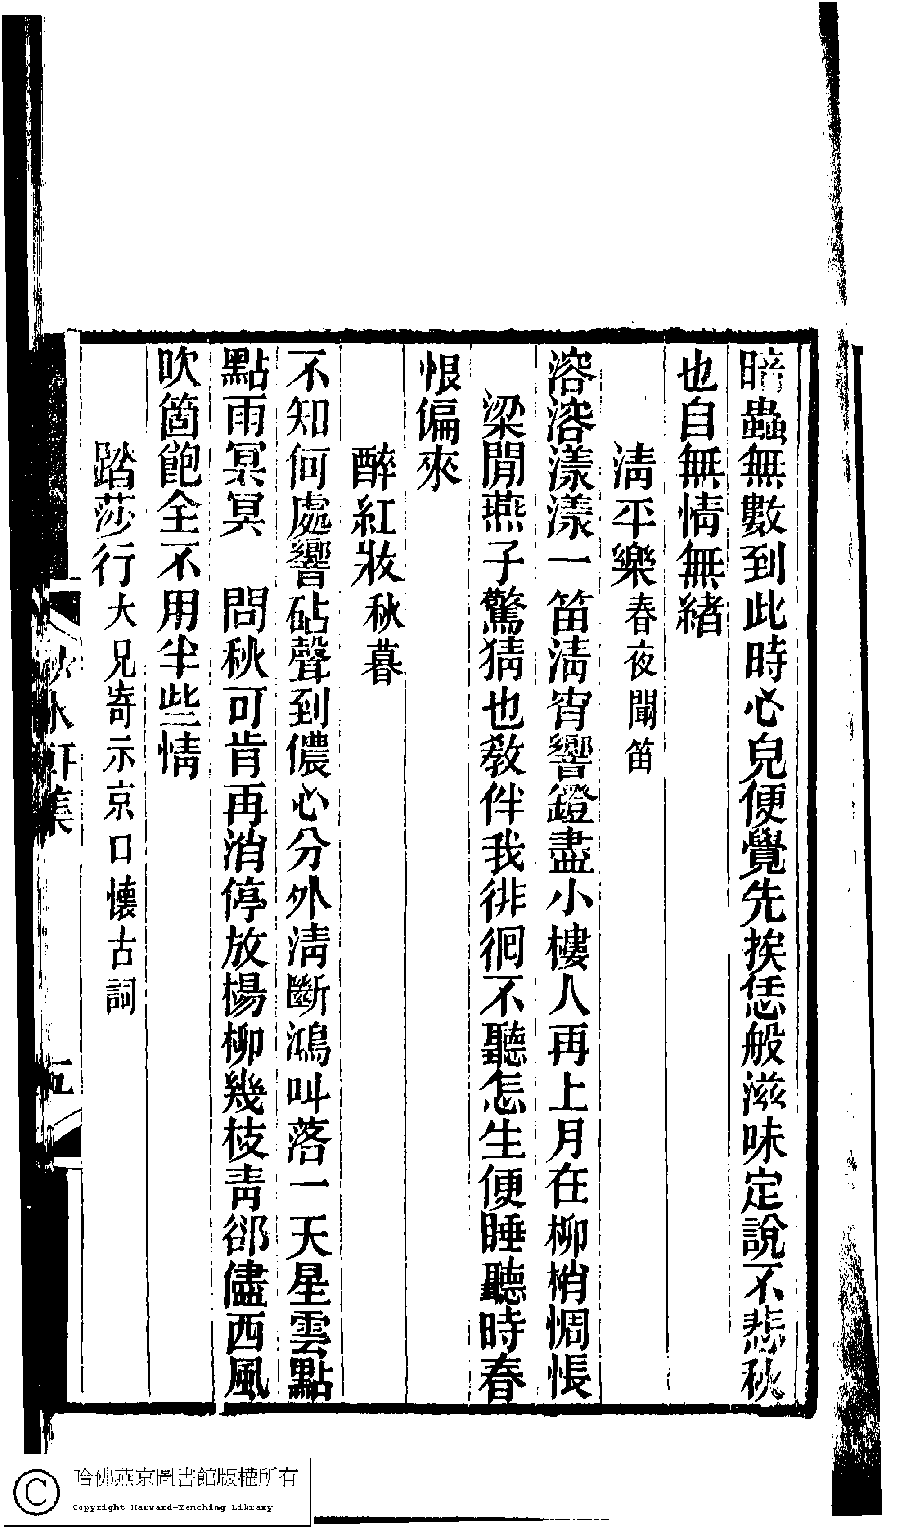 暗蟲無數到此時心兒便覺先挨恁般滋味定說不悲秋
也自無情無緒
淸平樂春夜聞笛
溶溶漾漾一笛淸宵響鐙盡小樓人再上月在柳梢惆悵
梁間燕子驚猜也敎伴我徘徊不聽怎生便睡聽時春
恨偏來
醉紅妝秋暮
不知何處響砧聲到儂心分外淸斷鴻叫落一天星雲點
點雨冥冥　問秋可肯再消停放楊柳幾枝靑郤儘西風
吹箇飽全不用半些情
踏莎行大兄寄示京口懷古詞
水軒集
五
哈佛燕京圖書館版權所有
Copyright Harvard-Yenching Library